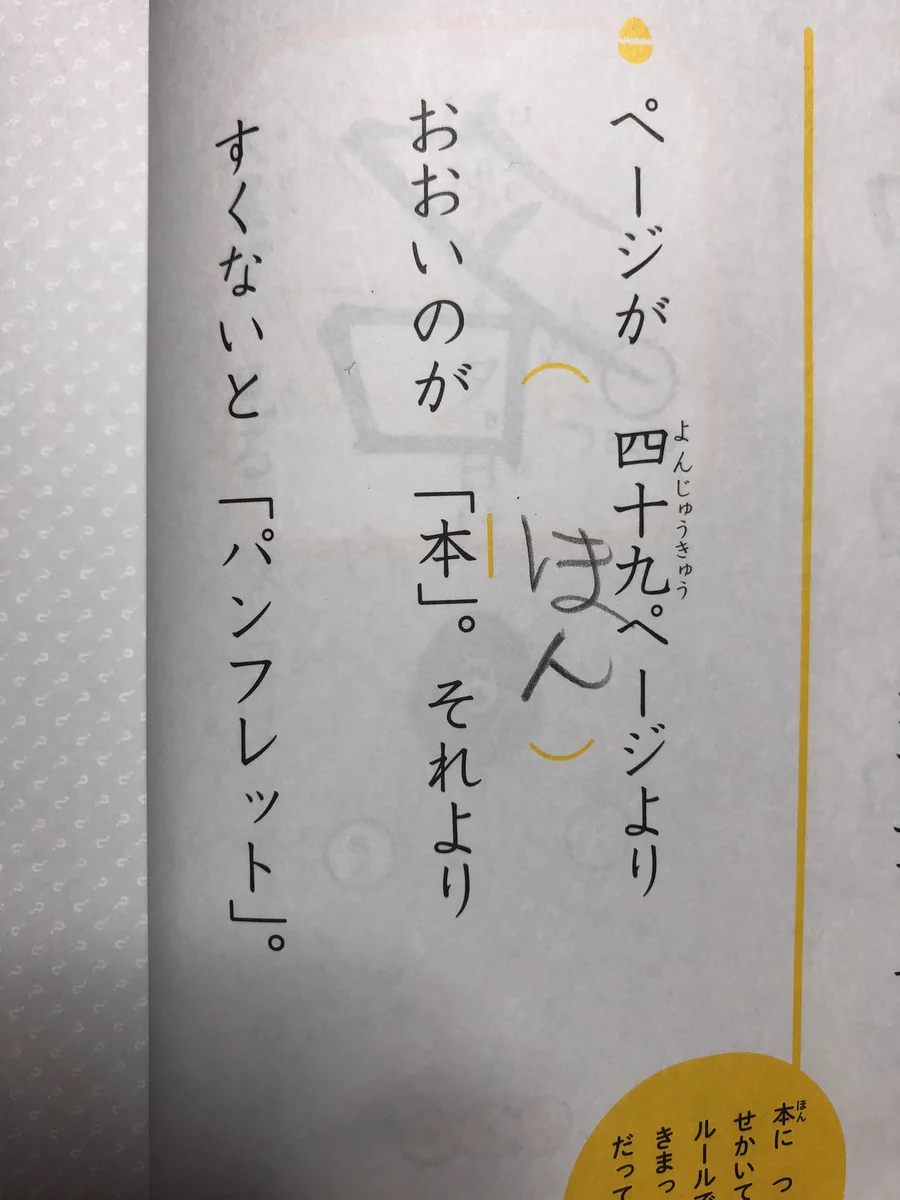 ページが 四十九ページより
よんじゅうきゅう
(ほん)
おおいのが 「本」。それより
すくないと 「パンフレット」。
本に つ
ほん
せかいて
ルールで
きまっ
だって